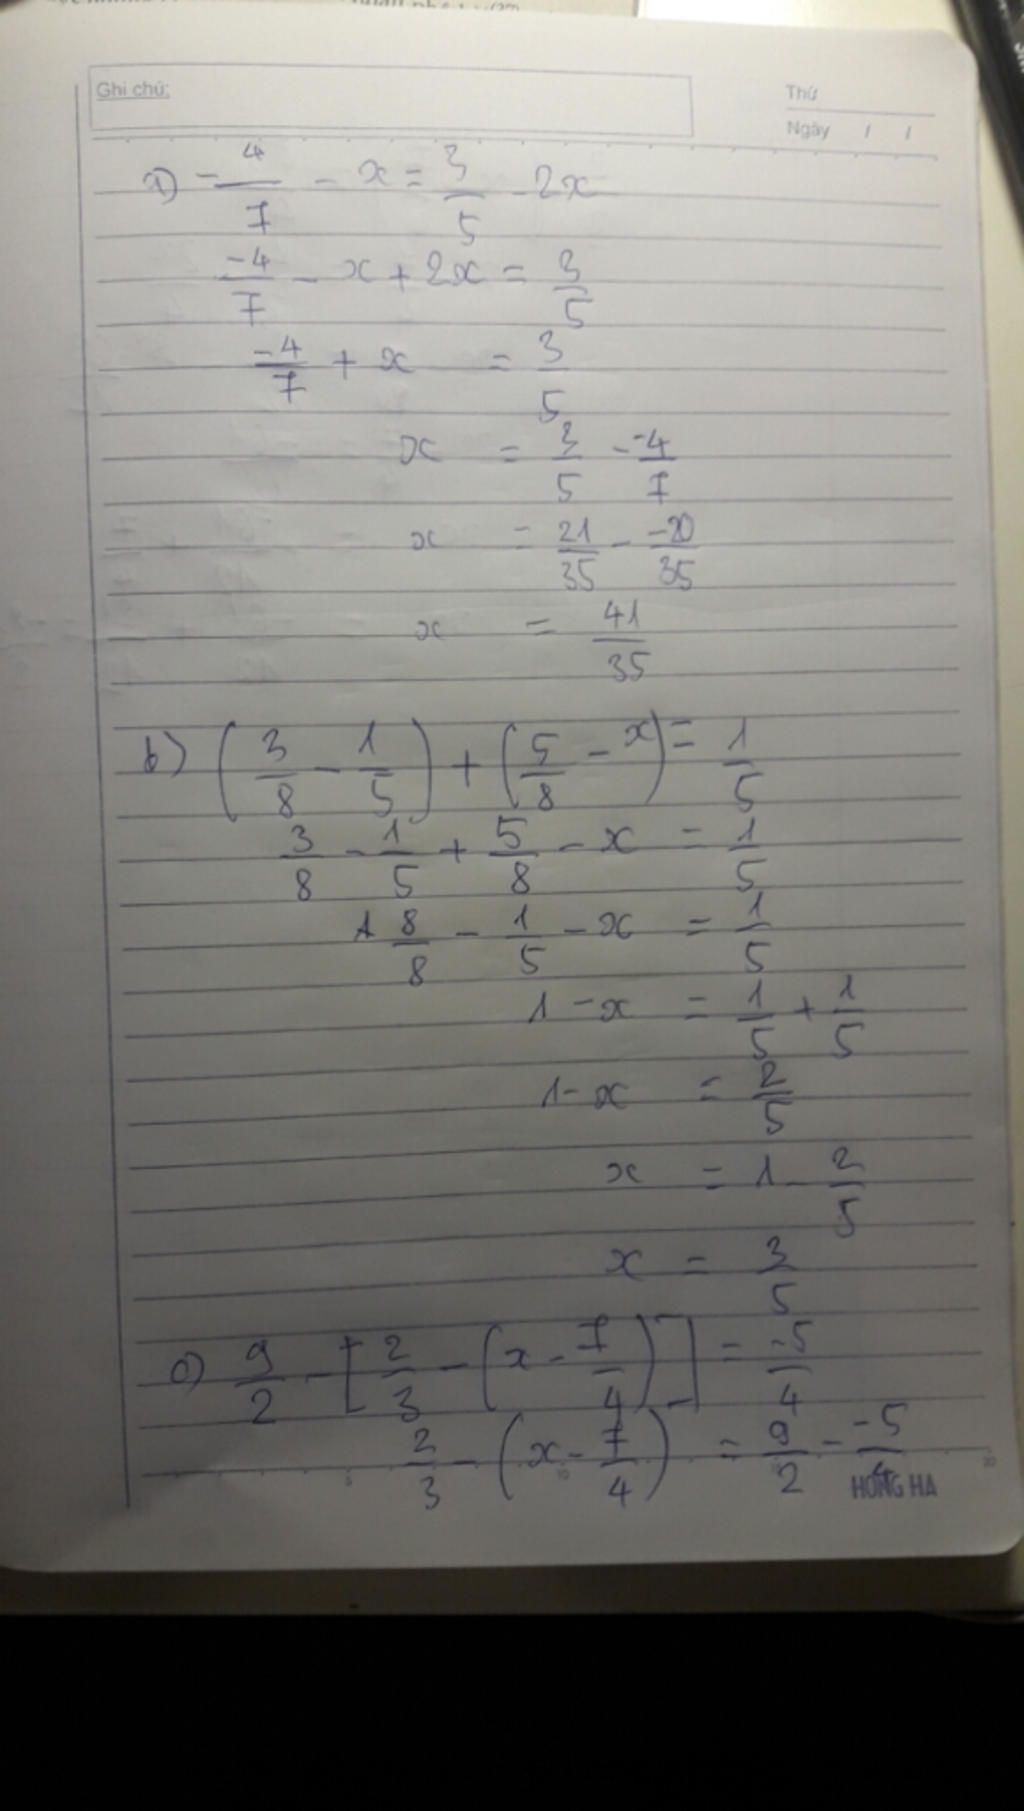 Ghi chú:
Thứ
Ngày / /
a) -4/7 - x = 3/5 - 2x
-4/7 - x + 2x = 3/5
-4/7 + x = 3/5
x = 3/5 - -4/7
x = 21/35 - -20/35
x = 41/35
b) (3/8 - 1/5) + (5/8 - x) = 1/5
3/8 - 1/5 + 5/8 - x = 1/5
8/8 - 1/5 - x = 1/5
1 - x = 1/5 + 1/5
1 - x = 2/5
x = 1 - 2/5
x = 3/5
c) 9/2 - [2/3 - (x - 7/4)] = -5/4
2/3 - (x - 7/4) = 9/2 - -5/4
HONG HA